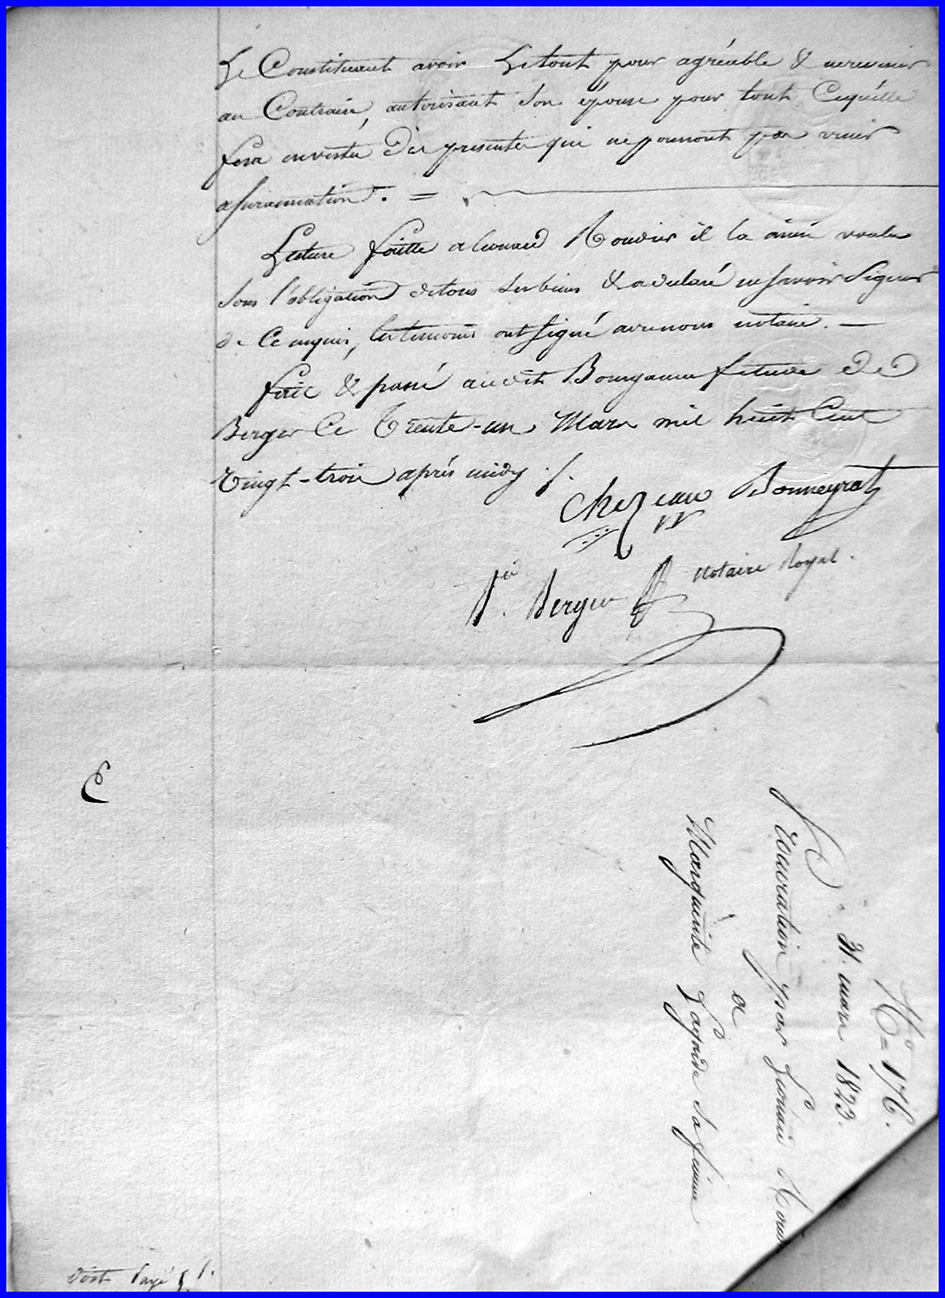 Le Constituant avoir Le tout pour agréable & ne revenir
au Contraire, autorisant son épouse pour tout Cequ'elle
fera en vertu des presentes qui ne pourront pas venir
a surannation. =
Lecture faitte a Leonard Rouvier il la ainsi voulu
sous l'obligation de tous ses biens & a declaré ne savoir Signer
de Ce enquis, les temoins ont signé avec nous notaire. —
fait & passé audit Bourganeuf etude de
Berger Ce Trente-un Mars mil huit Cent
Vingt-trois après midy ./.
Chezeau Bonneyrat
Berger notaire Royal.
E
N° = 176.
31. mars 1823.
Procuration par Leonard
a
Marguerite Laforide sa femme